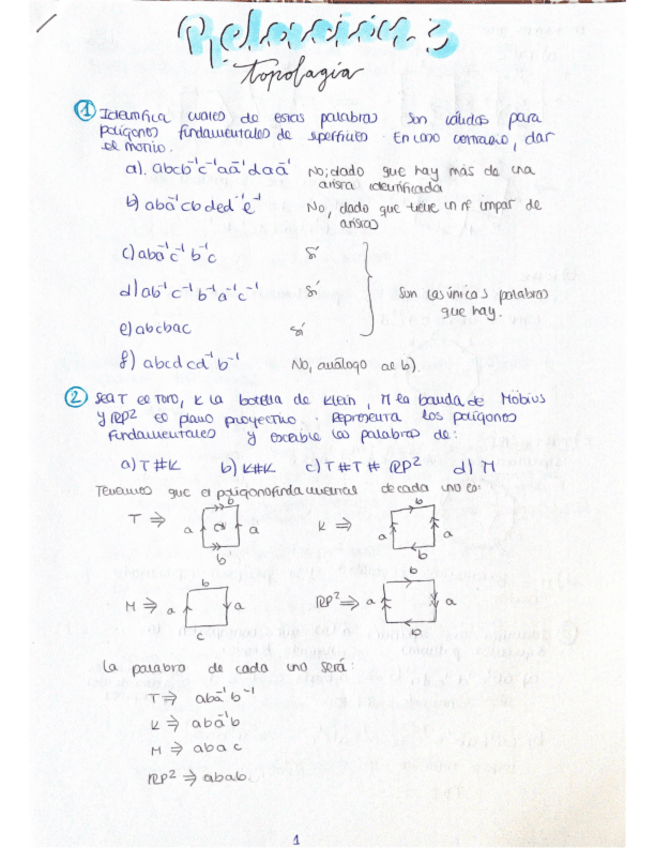 Relación 3
topología
1 Identifica cuales de estas palabras son válidas para
polígonos fundamentales de superficies. En caso contrario, dar
el motivo.
a). abcb⁻¹c⁻¹aā⁻¹daā⁻¹ No; dado que hay más de una
arista identificada
b) abā⁻¹cbded⁻¹e⁻¹ No, dado que tiene un nº impar de
aristas
c) abā⁻¹c⁻¹b⁻¹c sí
d) ab⁻¹c⁻¹b⁻¹a⁻¹c⁻¹ sí Son las únicas palabras
que hay.
e) abcbac sí
f) abcdcd⁻¹b⁻¹ No, análogo al b)
2 Sea T el Toro, K la botella de Klein, M la banda de Möbius
y RP² el plano proyectivo. Representa los polígonos
fundamentales y escribe las palabras de:
a) T#K b) K#K c) T#T#RP² d) M
Tenemos que el polígono fundamental de cada uno es:
b b
T ⇒ a a K ⇒ a a
b b
b b
M ⇒ a a RP² ⇒ a a
c b
La palabra de cada uno será:
T ⇒ abā⁻¹b⁻¹
K ⇒ abā⁻¹b
M ⇒ abac
RP² ⇒ abab.
1